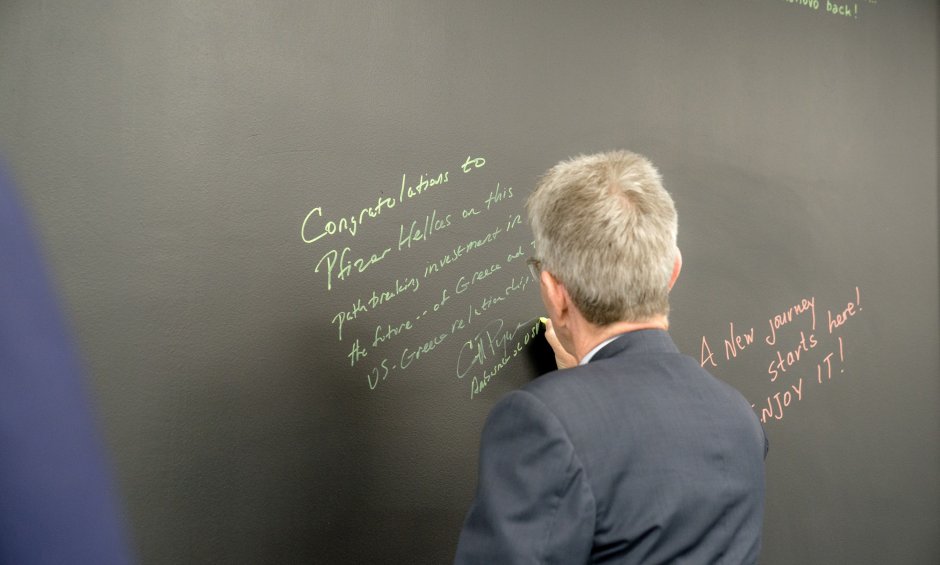 back!
Congratulations to
Pfizer Hellas on this
pathbreaking investment in
the future -- of Greece and
US-Greece relationship
A New journey
starts here!
ENJOY IT!